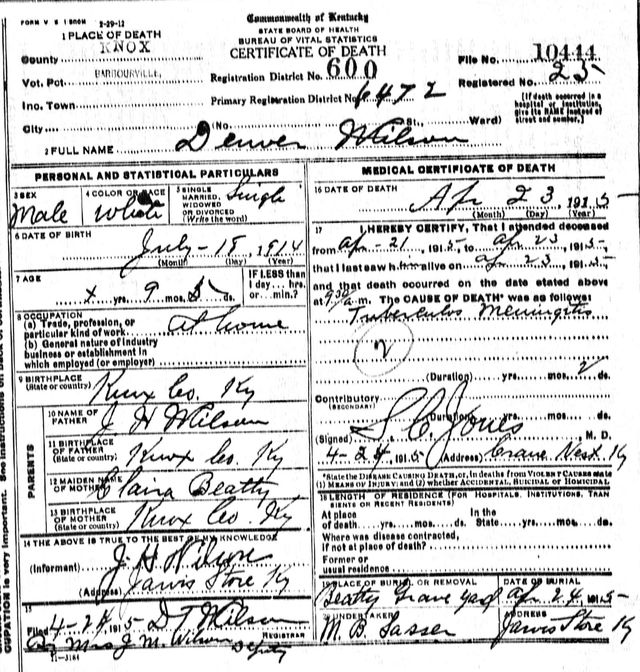 FORM V S 1 2-29-12
Commonwealth of Kentucky
STATE BOARD OF HEALTH
BUREAU OF VITAL STATISTICS
CERTIFICATE OF DEATH
1 PLACE OF DEATH
County KNOX
Vot. Pct. BARBOURVILLE,
Ino. Town
City
Registration District No. 600
Primary Registration District No. 6472
(No. St., Ward)
File No. 10444
Registered No. 25
[If death occurred in a hospital or institution, give its NAME instead of street and number.]
2 FULL NAME Denver Wilson
PERSONAL AND STATISTICAL PARTICULARS
3 SEX Male
4 COLOR OR RACE White
5 SINGLE MARRIED, WIDOWED OR DIVORCED (Write the word) Single
6 DATE OF BIRTH July - 18, 1914
(Month) (Day) (Year)
7 AGE x yrs. 9 mos. 5 ds.
IF LESS than 1 day... hrs. or... min.?
8 OCCUPATION
(a) Trade, profession, or particular kind of work At home
(b) General nature of industry business or establishment in which employed (or employer)
9 BIRTHPLACE (State or country) Knox Co. Ky
PARENTS
10 NAME OF FATHER J H Wilson
11 BIRTHPLACE OF FATHER (State or country) Knox Co. Ky
12 MAIDEN NAME OF MOTHER Beatty
13 BIRTHPLACE OF MOTHER (State or country) Knox Co. Ky
14 THE ABOVE IS TRUE TO THE BEST OF MY KNOWLEDGE
(Informant) J. H Wilson
(Address) Jarvis Store Ky
15
Filed 4-24, 1915 D T Wilson REGISTRAR
By Mrs J. M. Wilson Deputy
11-3184
MEDICAL CERTIFICATE OF DEATH
16 DATE OF DEATH Apr 23, 1915
(Month) (Day) (Year)
17 I HEREBY CERTIFY, That I attended deceased
from Apr - 21, 1915, to Apr 23, 1915,
that I last saw him alive on Apr 23, 1915,
and that death occurred on the date stated above
at 9 30 a.m. The CAUSE OF DEATH* was as follows:
Tuberculos Meningitis
(Duration) yrs. mos. 2 ds.
Contributory (SECONDARY)
(Duration) yrs. mos. ds.
(Signed) S. C. Jones M. D.
4-24, 1915 (Address) Crane Nest. Ky
*State the DISEASE CAUSING DEATH, or, in deaths from VIOLENT CAUSES state
(1) MEANS OF INJURY; and (2) whether ACCIDENTAL, SUICIDAL or HOMICIDAL
18 LENGTH OF RESIDENCE (FOR HOSPITALS, INSTITUTIONS, TRANSIENTS OR RECENT RESIDENTS)
At place of death yrs. mos. ds. In the State yrs. mos. ds.
Where was disease contracted, if not at place of death?
Former or usual residence
19 PLACE OF BURIAL OR REMOVAL Beatty Grave yard
DATE OF BURIAL Apr 24, 1915
20 UNDERTAKER M. B. Sasser
ADDRESS Jarvis Store Ky